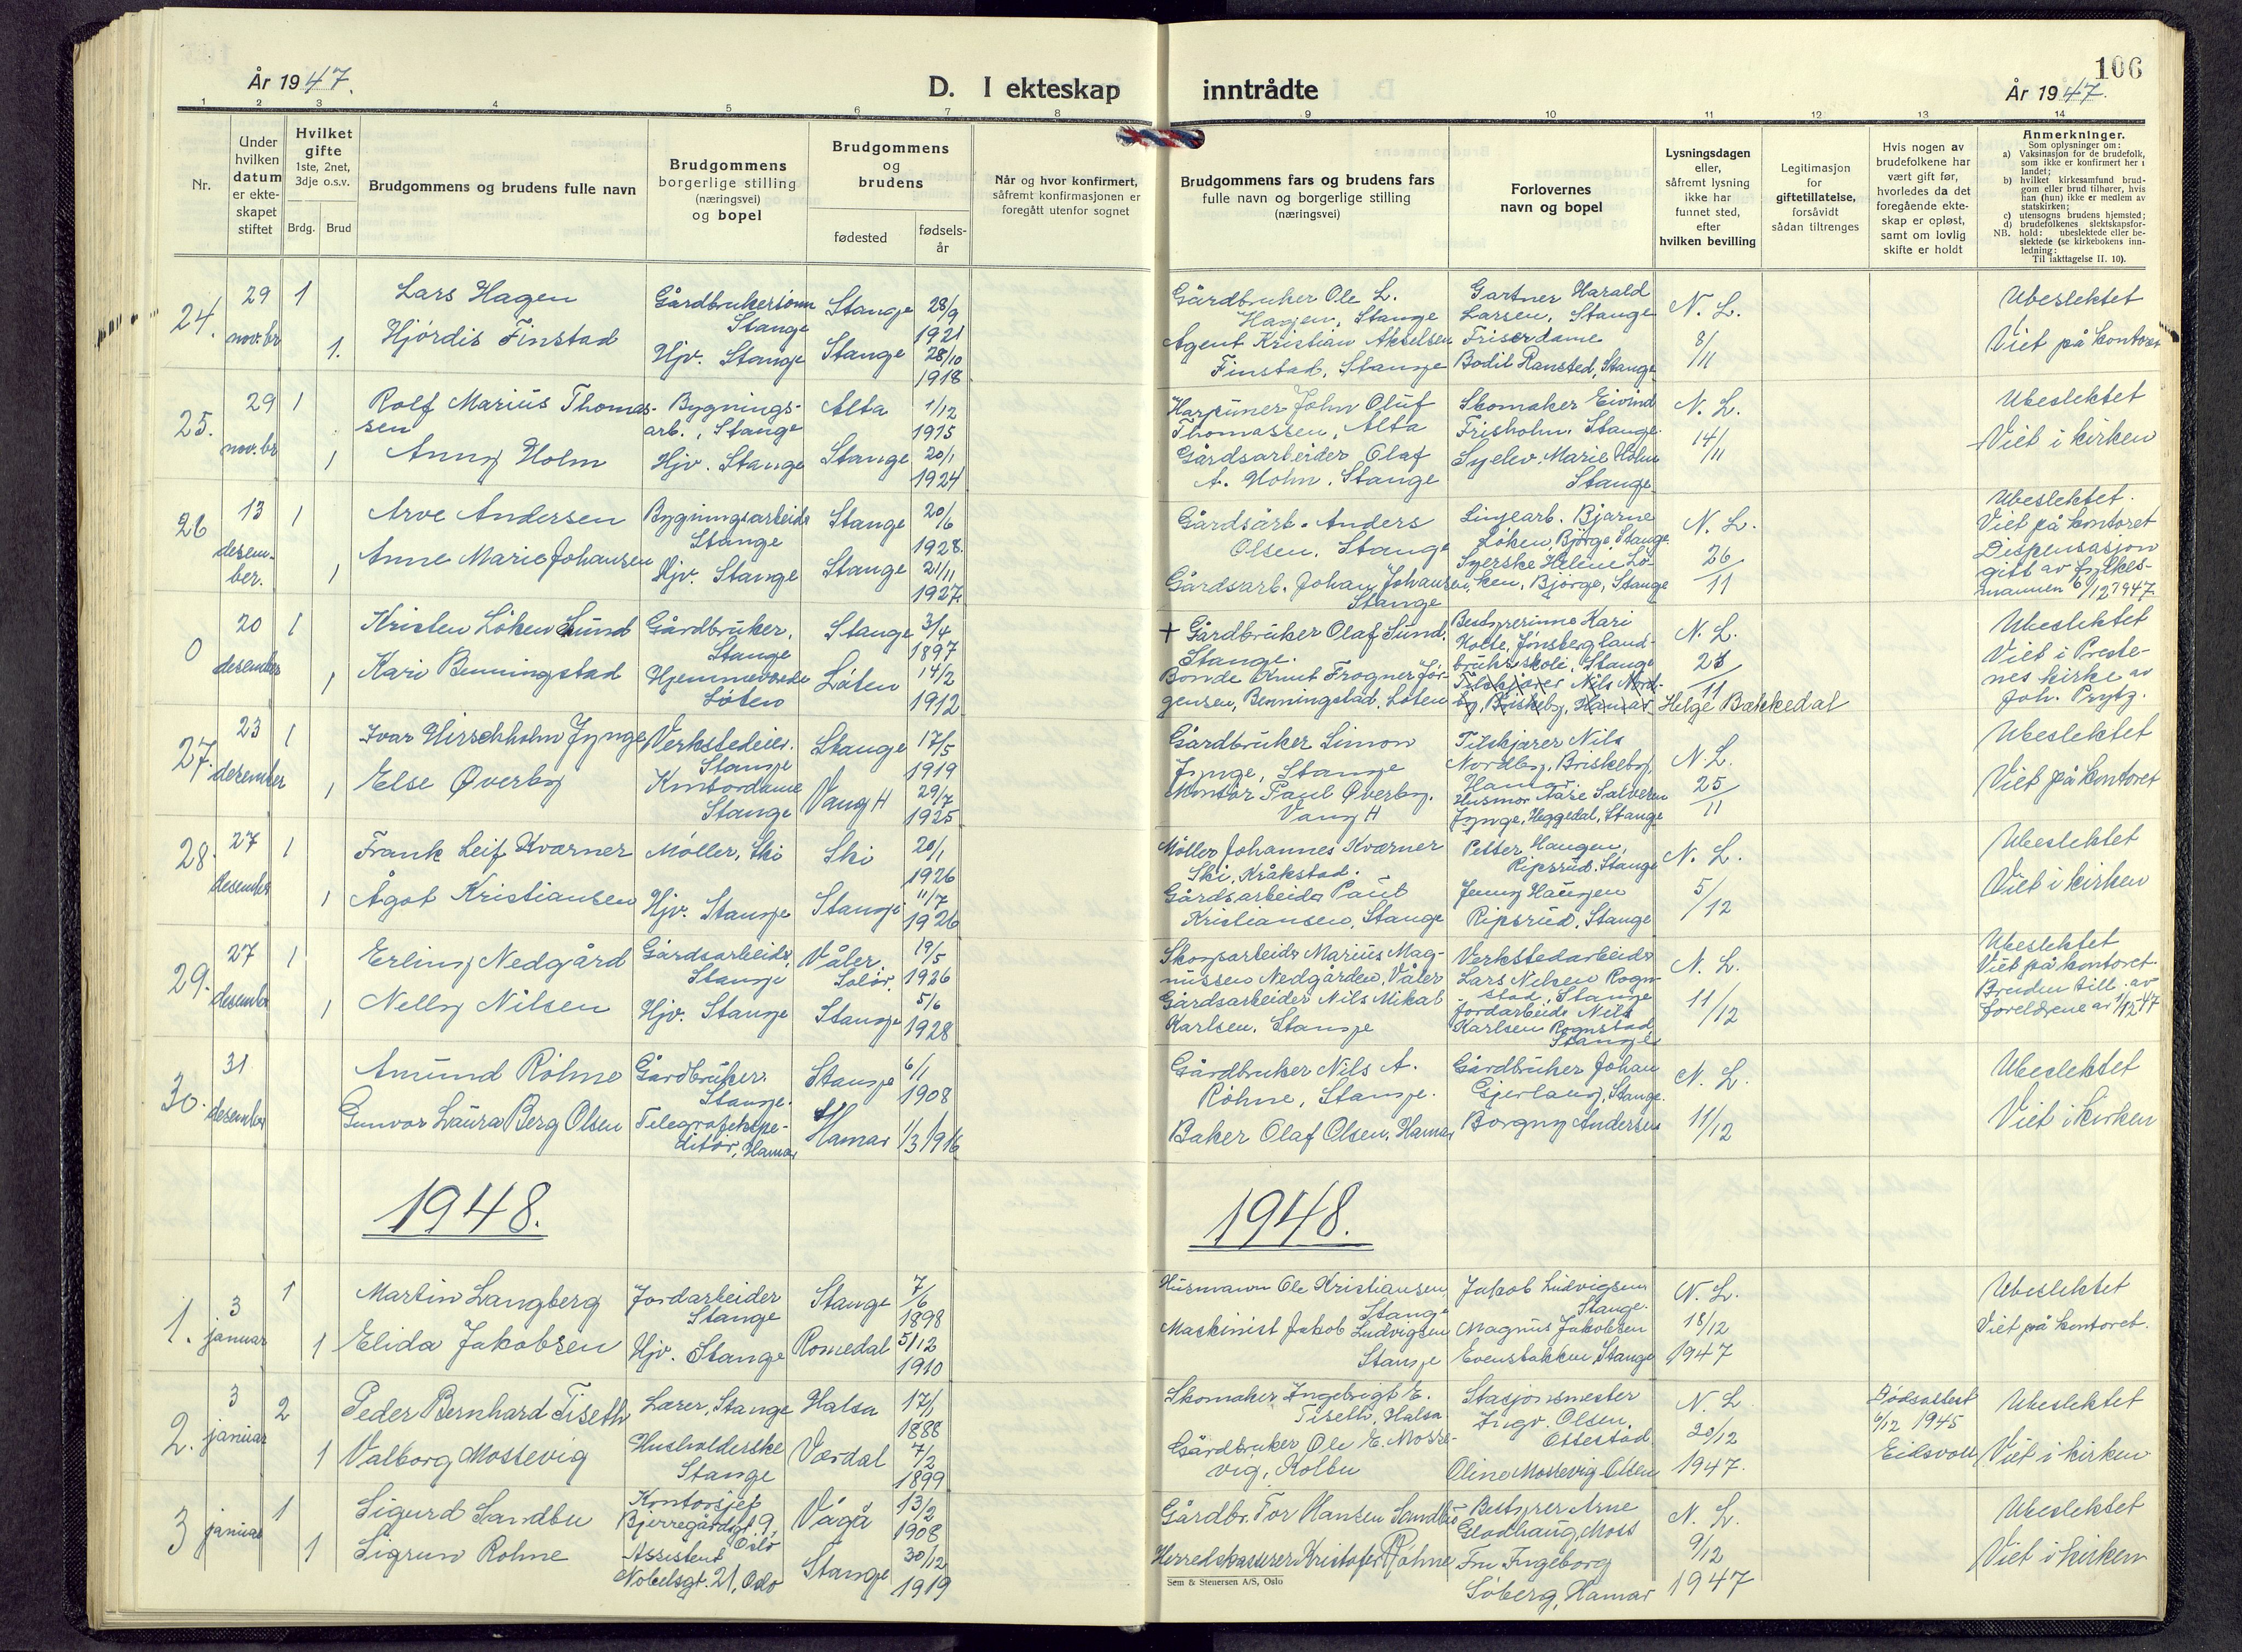 106
År 1947.
D. I ekteskap inntrådte
År 1947.
1 2 3 4 5 6 7 8 9 10 11 12 13 14
Nr.
Under hvilken datum er ekteskapet stiftet
Hvilket gifte 1ste, 2net, 3dje o.s.v.
Brdg. Brud
Brudgommens og brudens fulle navn
Brudgommens borgerlige stilling (næringsvei) og bopel
Brudgommens og brudens
fødested
fødsels-år
Når og hvor konfirmert, såfremt konfirmasjonen er foregått utenfor sognet
Brudgommens fars og brudens fars fulle navn og borgerlige stilling (næringsvei)
Forlovernes navn og bopel
Lysningsdagen eller, såfremt lysning ikke har funnet sted, efter hvilken bevilling
Legitimasjon for giftetillatelse, forsåvidt sådan tiltrenges
Hvis nogen av brudefolkene har vært gift før, hvorledes da det foregående ekteskap er opløst, samt om lovlig skifte er holdt
Anmerkninger.
Som oplysninger om:
a) Vaksinasjon for de brudefolk, som ikke er konfirmert her i landet;
b) hvilket kirkesamfund brudgom eller brud tilhører, hvis han (hun) ikke er medlem av statskirken;
c) utensogns brudens hjemsted;
d) brudefolkenes slektskapsforhold: ubeslektede eller beslektede (se kirkebokens innledning:
NB.
Til iakttagelse II. 10).
24. 29 nov.br 1 Lars Hagen Gårdbrukersønn Stange Stange 28/9 1921 Gårdbruker Ole L. Hagen, Stange Gartner Harald Larsen, Stange N. L. 8/11 Ubeslektet
1. Hjördis Finstad Hjv. Stange Stange 28/10 1918 Agent Kristian Akselsen Finstad, Stange Friserdame Bodil Ransted, Stange Viet på kontoret
25. 29 nov.br 1 Rolf Marius Thomassen Bygningsarb., Stange Alta 1/12 1915 Harpuner John Oluf Thomassen, Alta Skomaker Eivind Frisholm, Stange N. L. 14/11 Ubeslektet
1 Anny Holm Hjv. Stange Stange 20/1 1924 Gårdsarbeider Olaf A. Holm, Stange Syelev. Marie Holm Stange Viet i kirken
26 13 desember. 1 Arve Andersen Bygningsarbeider Stange Stange 20/6 1928. Gårdsarb. Anders Olsen, Stange Linjearb. Bjarne Löken, Björge, Stange N. L. 26/11 Ubeslektet. Viet på kontoret
1 Anne Marie Johansen Hjv. Stange Stange 21/11 1927. Gårdsarb. Johan Johansen, Stange Syerske Helene Löken, Björge, Stange Dispensasjon gitt av fylkesmannen 6/12 1947
0 20 desember 1 Kristen Löken Sund Gårdbruker, Stange Stange 3/4 1897 + Gårdbruker Olaf Sund, Stange. Bestyrerinne Kari Holte, Jönsberg landbruksskole, Stange N. L. 23/11 Ubeslektet
1 Kari Benningstad Hjemmeværende Löten Löten 14/2 1912 Bonde Knut Frogner Jörgensen, Benningstad, Löten Tilskjærer Nils Nordby, Briskeby, Hamar Helge Bækkedal Viet i Prestenes kirke av Joh. Prytz.
27. 23 desember 1 Ivar Hirschholm Jynge Verkstedeier. Stange Stange 17/5 1919 Gårdbruker Simon Jynge, Stange Tilskjærer Nils Nordby, Briskeby, Hamar N. L. 25/11 Ubeslektet
1 Else Øverby Kontordame Stange Vang H 29/7 1925 Montör Paul Øverby. Vang H Husmor Aase Salvesen Jynge, Heggedal, Stange Viet på kontoret
28. 27 desember 1 Frank Leif Kværner Möller, Ski Ski 20/1 1926 Möller Johannes Kværner Ski, Kråkstad. Petter Haugen, Ripsrud, Stange N. L. 5/12 Ubeslektet
1 Ågot Kristiansen Hjv. Stange Stange 11/7 1926 Gårdsarbeider Paul Kristiansen, Stange Jenny Haugen Ripsrud, Stange Viet i kirken
29. 27 desember 1 Erling Nedgård Gårdsarbeider, Stange Våler, Solör. 19/5 1926 Skogsarbeider Marius Magnussen Nedgården, Våler Verkstedarbeider Lars Nilsen Rognstad, Stange N. L. 11/12 Ubeslektet Viet på kontoret
1 Nelly Nilsen Hjv. Stange Stange 5/6 1928 Gårdsarbeider Nils Mikal Karlsen, Stange Jordarbeider Nils Karlsen Rognstad, Stange Bruden till. av foreldrene av 11/12-47
30. 31 desember Amund Röhne Gårdbruker. Stange. Stange 6/1 1908 Gårdbruker Nils A. Röhne, Stange. Gårdbruker Johan Gjerlaug, Stange. N. L. 11/12 Ubeslektet
Gunvor Laura Berg Olsen Telegrafekspeditör, Hamar Hamar 1/3 1916 Baker Olaf Olsen, Hamar Borgny Andersen Viet i kirken
1948. 1948.
1. 3 januar 1 Martin Langberg Jordarbeider Stange Stange 7/6 1898 Husmann Ole Kristiansen, Stange Jakob Ludvigsen, Stange. N. L. 18/12 1947 Ubeslektet
1 Elida Jakobsen Hjv. Stange Romedal 5/12 1910 Maskinist Jakob Ludvigsen Stange Magnus Jakobsen Evenstakken, Stange Viet på kontoret.
2. 3 januar 2 Peder Bernhard Tiseth Lærer, Stange Halsa 17/1 1888 Skomaker Ingebrigt E. Tiseth, Halsa Stasjonsmester Ingv. Olsen, Ottestad N. L 20/12 1947. Dødsattest 6/12 1945 Eidsvoll Ubeslektet
1 Valborg Mostevig Husholderske Stange Værdal 7/2 1899 Gårdbruker Ole E. Mostevig, Kolbu Oline Mostevig Olsen Viet i kirken
3 januar 1 Sigurd Sandbu Kontorsjef Bjerregårdsgt. 9, Oslo Vågå 13/2 1908 Gårdbr. Tor Hansen Sandbu Bestyrer Arne Glodhaug, Moss N. L. 9/12 1947 Ubeslektet
1 Sigrun Rohne Assistent Nobelsgt. 21, Oslo Stange 30/12 1919 Herredskasserer Kristofer Röhne Fru Ingeborg Söberg, Hamar Viet i kirken
Sem & Stenersen A/S, Oslo